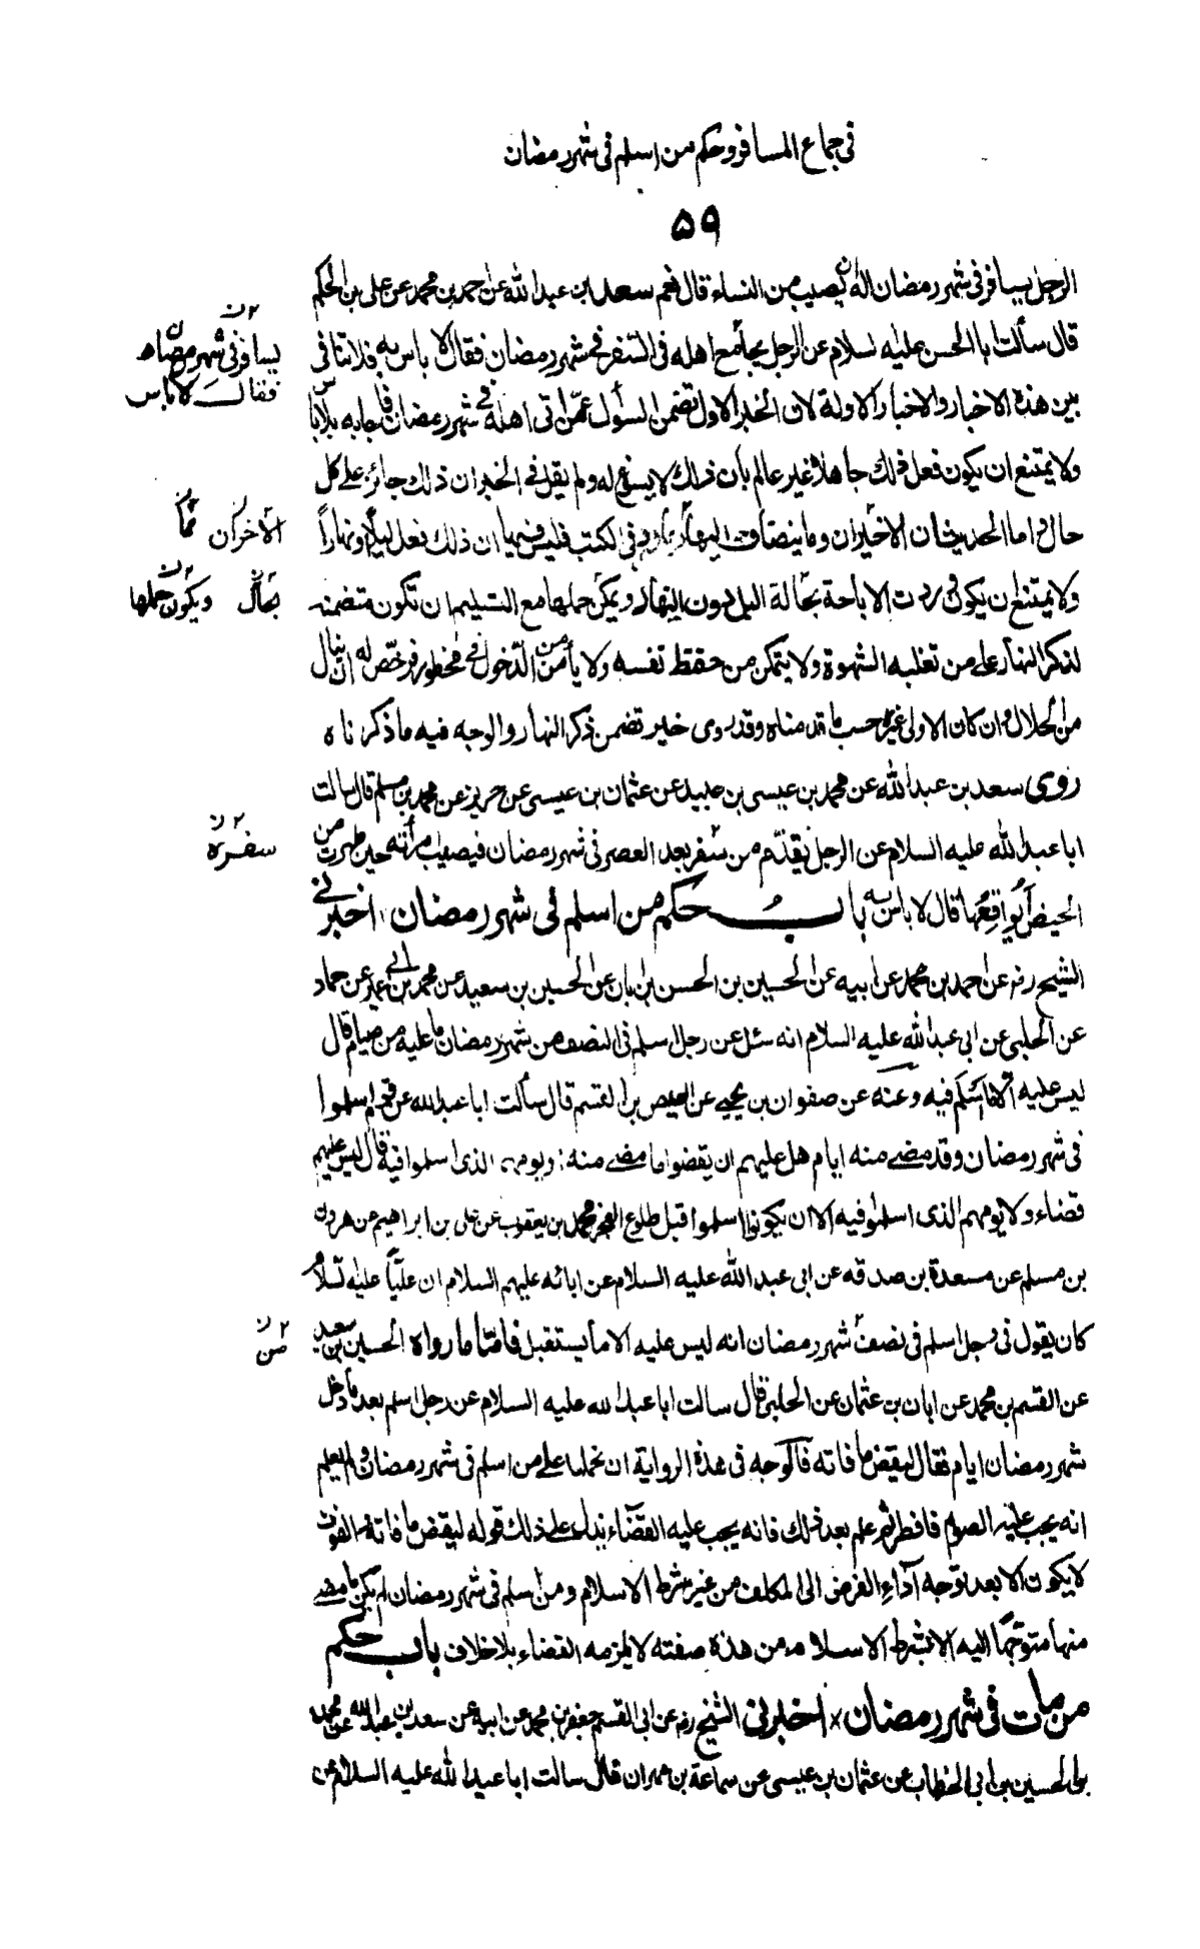 فى جماع المسافر وحكم من اسلم فى شهر رمضان
٥٩
الرجل يسافر فى شهر رمضان اله ان يصيب من النساء قال نعم سعد بن عبد الله عن احمد بن محمد عن على بن الحكم
قال سألت ابا الحسن عليه لسلام عن الرجل يجامع اهله فى السفر فى شهر رمضان فقال لا باس به فلا تنافى
يسافر فى شهر رمضان
فقال لا باس
بين هذه الاخبار والاخبار الاولة لان الخبر الاول تضمن السؤال عمن اتى اهله فى شهر رمضان فاجابه بلا باس
ولا يمتنع ان يكون فعل ذلك جاهلا غير عالم بان ذلك لا يسوغ له ولم يقل فى الخبر ان ذلك جائز على كل
حال واما الحديثان الاخيران وما ينضاف اليهما فى الكتب فليس فيها ان ذلك فعل ليلا ونهاراً
الآخران مما
ولا يمتنع ان يكون وردت الاباحة بحالة اليل دون النهار ويمكن حملها مع التسليم ان تكون متضمنه
بحال ويكون حملها
لذكر النهار على من تغلبه الشهوة ولا يتمكن من حفظ نفسه ولا يأمن من الدّخول فى محظور فرخّص له ان ينال
من الحلال وان كان الاولى غيره حسب ما قدمناه وقد روى خبر تضمن ذكر النهار والوجه فيه ما ذكرناه
روى سعد بن عبد الله عن محمد بن عيسى بن عبيد عن عثمان بن عيسى عن حريز عن محمد بن مسلم قال سالت
ابا عبد الله عليه السلام عن الرجل يقدّم من سفر بعد العصر فى شهر رمضان فيصيب امرأته حين طهرت من
سفره
الحيض أيواقِعُها قال لا باس به باب حكم من اسلم فى شهر رمضان اخبرنى
الشيخ ره عن احمد بن محمد عن ابيه عن الحسين بن الحسن بن ابان عن الحسين بن سعيد عن محمد بن ابى عمير عن حماد
عن الحلبى عن ابى عبد الله عليه السلام انه سئل عن رجل اسلم فى النصف من شهر رمضان ما عليه من صيام قال
ليس عليه الا ما اسلم فيه وعنه عن صفوان بن يحيى عن العيص بن القسم قال سألت ابا عبد الله عن قوم اسلموا
فى شهر رمضان وقد مضى منه ايام هل عليهم ان يقضوا ما مضى منه او يومهم الذى اسلموا فيه قال ليس عليهم
قضاء ولا يومهم الذى اسلموا فيه الا ان يكونوا اسلموا قبل طلوع الفجر محمد بن يعقوب عن على بن ابراهيم عن هرون
بن مسلم عن مسعدة بن صدقه عن ابى عبد الله عليه السلام عن ابائه عليهم السلام ان عليّاً عليه لسلام
كان يقول فى رجل اسلم فى نصف شهر رمضان انه ليس عليه الا ما يستقبل فامّا ما رواه الحسين بن سعيد
من
عن القسم بن محمد عن ابان بن عثمان عن الحلبى قال سالت ابا عبد الله عليه السلام عن رجل اسلم بعد ما دخل
شهر رمضان ايام فقال ليقض ما فاته فالوجه فى هذه الرواية ان نحملها على من اسلم فى شهر رمضان ولم يعلم
انه يجب عليه الصوم فافطر ثم علم بعد ذلك فانه يجب عليه القضاء يدل على ذلك قوله ليقض ما فاته والفوت
لا يكون الا بعد توجه آداء الفرض الى المكلف من غير شرط الاسلام ومن اسلم فى شهر رمضان لم يكن ما مضى
منها متوجّهاً اليه الا بشرط الاسلام ومن هذه صفته لا يلزمه القضاء بلا خلاف باب حكم
من مات فى شهر رمضان اخبرنى الشيخ ره عن ابى القسم جعفر بن محمد عن ابيه عن سعد بن عبد الله عن محمد
بن الحسين بن ابى الخطاب عن عثمان بن عيسى عن سماعة بن مهران قال سالت ابا عبد الله عليه السلام عن